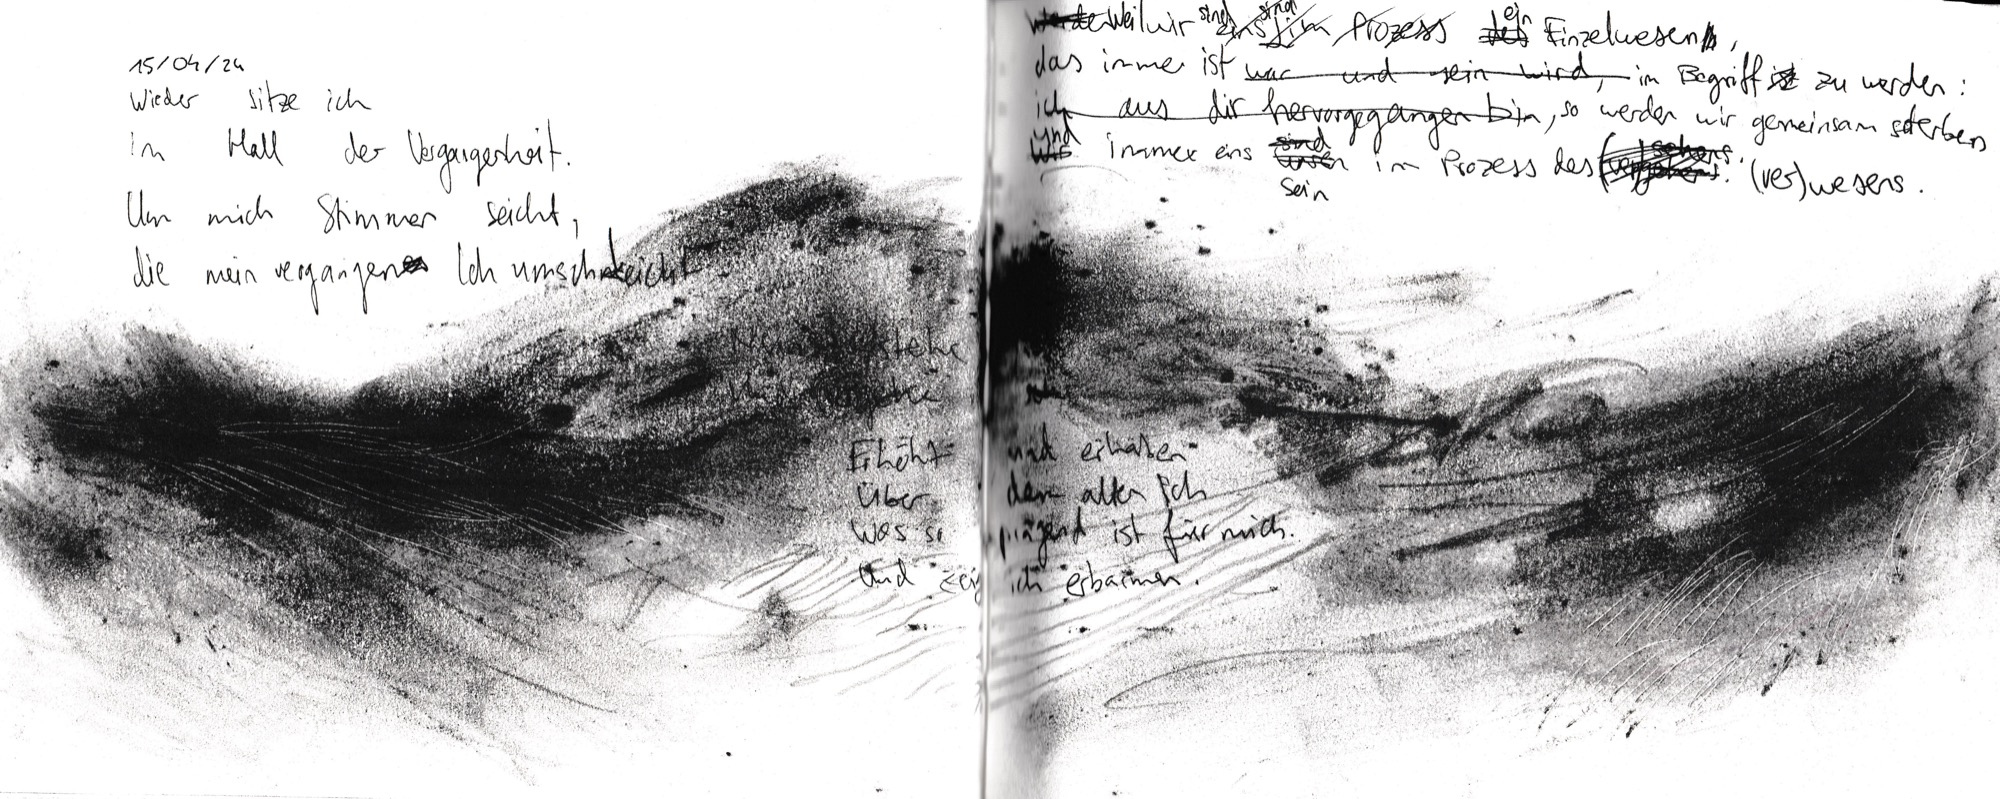 15/04/24
Wieder sitze ich
im Hall der Vergangenheit.
Um mich Stimmen seicht,
die mein vergangenes Ich umschleicht.
stehe
Erhöht und erhaben
über dem alten Ich
Was so prägend ist für mich.
Und ich erbarmen.
werde Weil wir sind eins sind im Prozess des ein Einzelwesen,
das immer ist war und sein wird, im Begriff ist zu werden:
ich aus dir hervorgegangen bin, so werden wir gemeinsam sterben
und wie immer eins sind sein im Prozess des (ver)wesens.